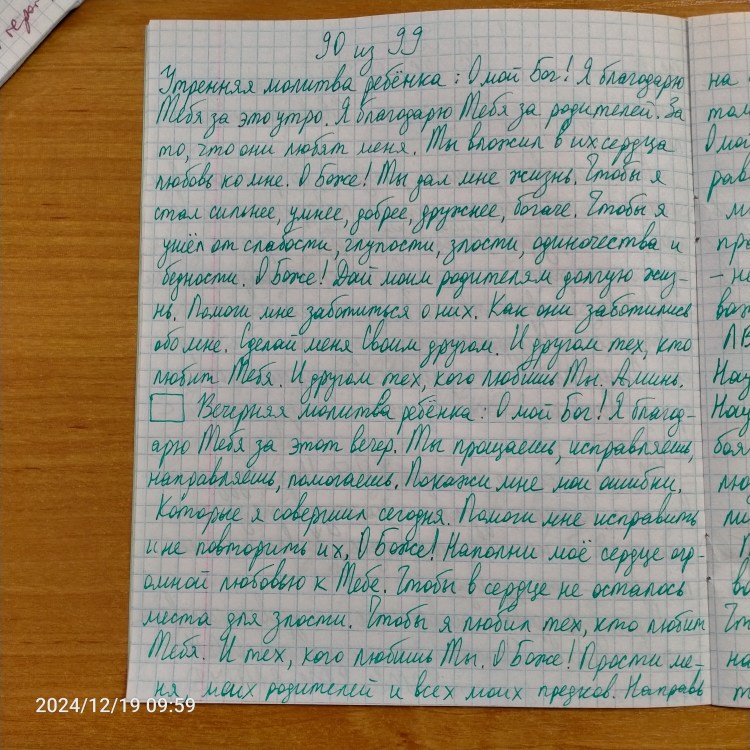 90 из 99
Утренняя молитва ребёнка: О мой Бог! Я благодарю
Тебя за это утро. Я благодарю Тебя за родителей. За
то, что они любят меня. Ты вложил в их сердца
любовь ко мне. О Боже! Ты дал мне жизнь. Чтобы я
стал сильнее, умнее, добрее, дружнее, богаче. Чтобы я
ушёл от слабости, глупости, злости, одиночества и
бедности. О Боже! Дай моим родителям долгую жиз-
нь. Помоги мне заботиться о них. Как они заботились
обо мне. Сделай меня Своим другом. И другом тех, кто
любит Тебя. И другом тех, кого любишь Ты. Аминь.
Вечерняя молитва ребёнка: О мой Бог! Я благод-
арю Тебя за этот вечер. Ты прощаешь, исправляешь,
направляешь, помогаешь. Покажи мне мои ошибки.
Которые я совершил сегодня. Помоги мне исправить
и не повторить их. О Боже! Наполни моё сердце огр-
омной любовью к Тебе. Чтобы в сердце не осталось
места для злости. Чтобы я любил тех, кто любит
Тебя. И тех, кого любишь Ты. О Боже! Прости ме-
ня, моих родителей и всех моих предков. Направь
на
О мой
2024/12/19 09:59